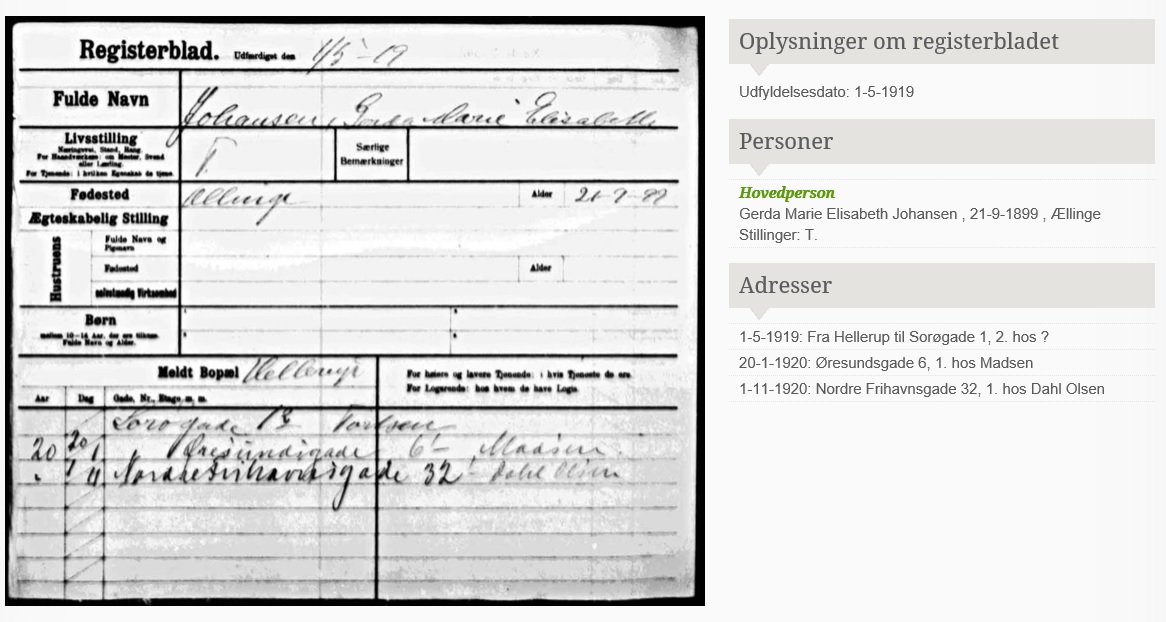 Registerblad. Udfærdiget den 1/5-19
Fulde Navn Johansen, Gerda Marie Elisabeth
Livsstilling
Næringsvej, Stand, Rang.
For Haandværkere: om Mester, Svend
eller Lærling.
For Tjenende: i hvilken Egenskab de tjene.
T.
Særlige
Bemærkninger
Fødested Ællinge Alder 21-9-99
Ægteskabelig Stilling
Hustruens
Fulde Navn og
Pigenavn
Fødested Alder
selvstændig Virksomhed
Børn
mellem 10-14 Aar, der ere tilkomne.
Fulde Navn og Alder.
Meldt Bopæl Hellerup
For højere og lavere Tjenende: i hvis Tjeneste de ere.
For Logerende: hos hvem de have Logis.
Aar Dag Gade, Nr., Etage m. m.
Sorøgade 1 2
20 20/1 " Øresundsgade 6 1 Madsen.
" 1/11 Nordre Frihavnsgade 32 1 Dahl Olsen
Oplysninger om registerbladet
Udfyldelsesdato: 1-5-1919
Personer
Hovedperson
Gerda Marie Elisabeth Johansen , 21-9-1899 , Ællinge
Stillinger: T.
Adresser
1-5-1919: Fra Hellerup til Sorøgade 1, 2. hos ?
20-1-1920: Øresundsgade 6, 1. hos Madsen
1-11-1920: Nordre Frihavnsgade 32, 1. hos Dahl Olsen